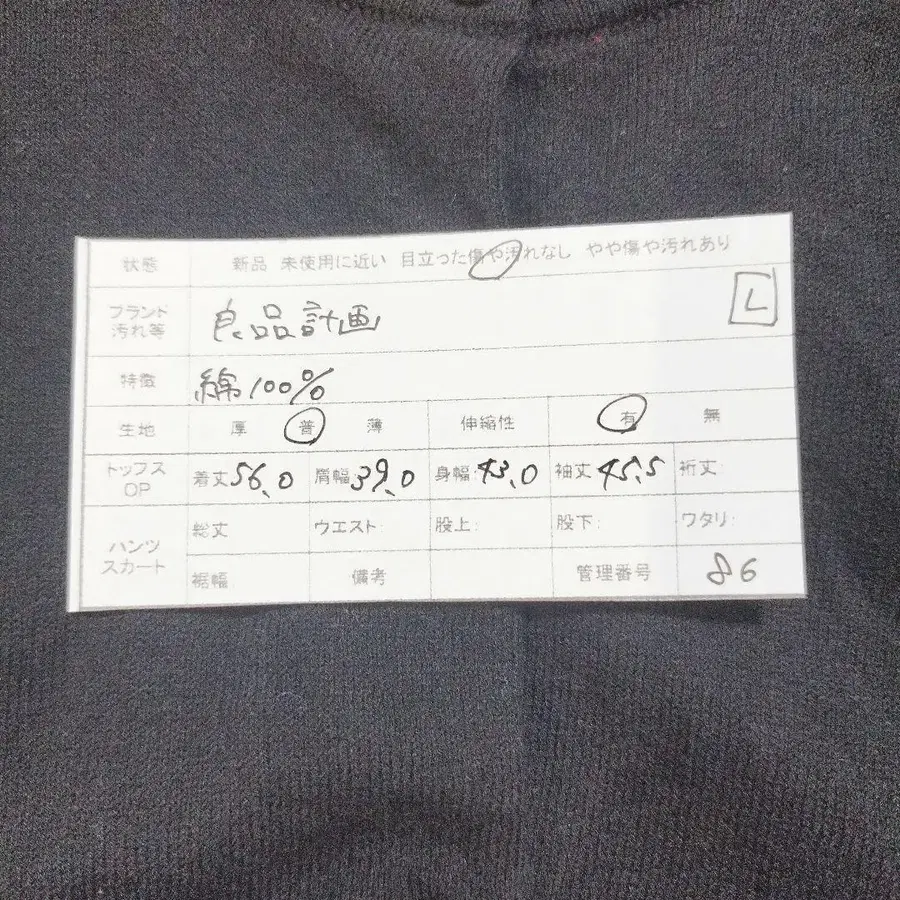 状態 新品 未使用に近い 目立った傷や汚れなし やや傷や汚れあり
ブランド 汚れ等 良品計画 L
特徴 綿100%
生地 厚 普 薄 伸縮性 有 無
トップス OP 着丈 56.0 肩幅 39.0 身幅: 43.0 袖丈 45.5 裄丈:
パンツ スカート 総丈 ウエスト: 股上: 股下: ワタリ:
裾幅 備考 管理番号 86